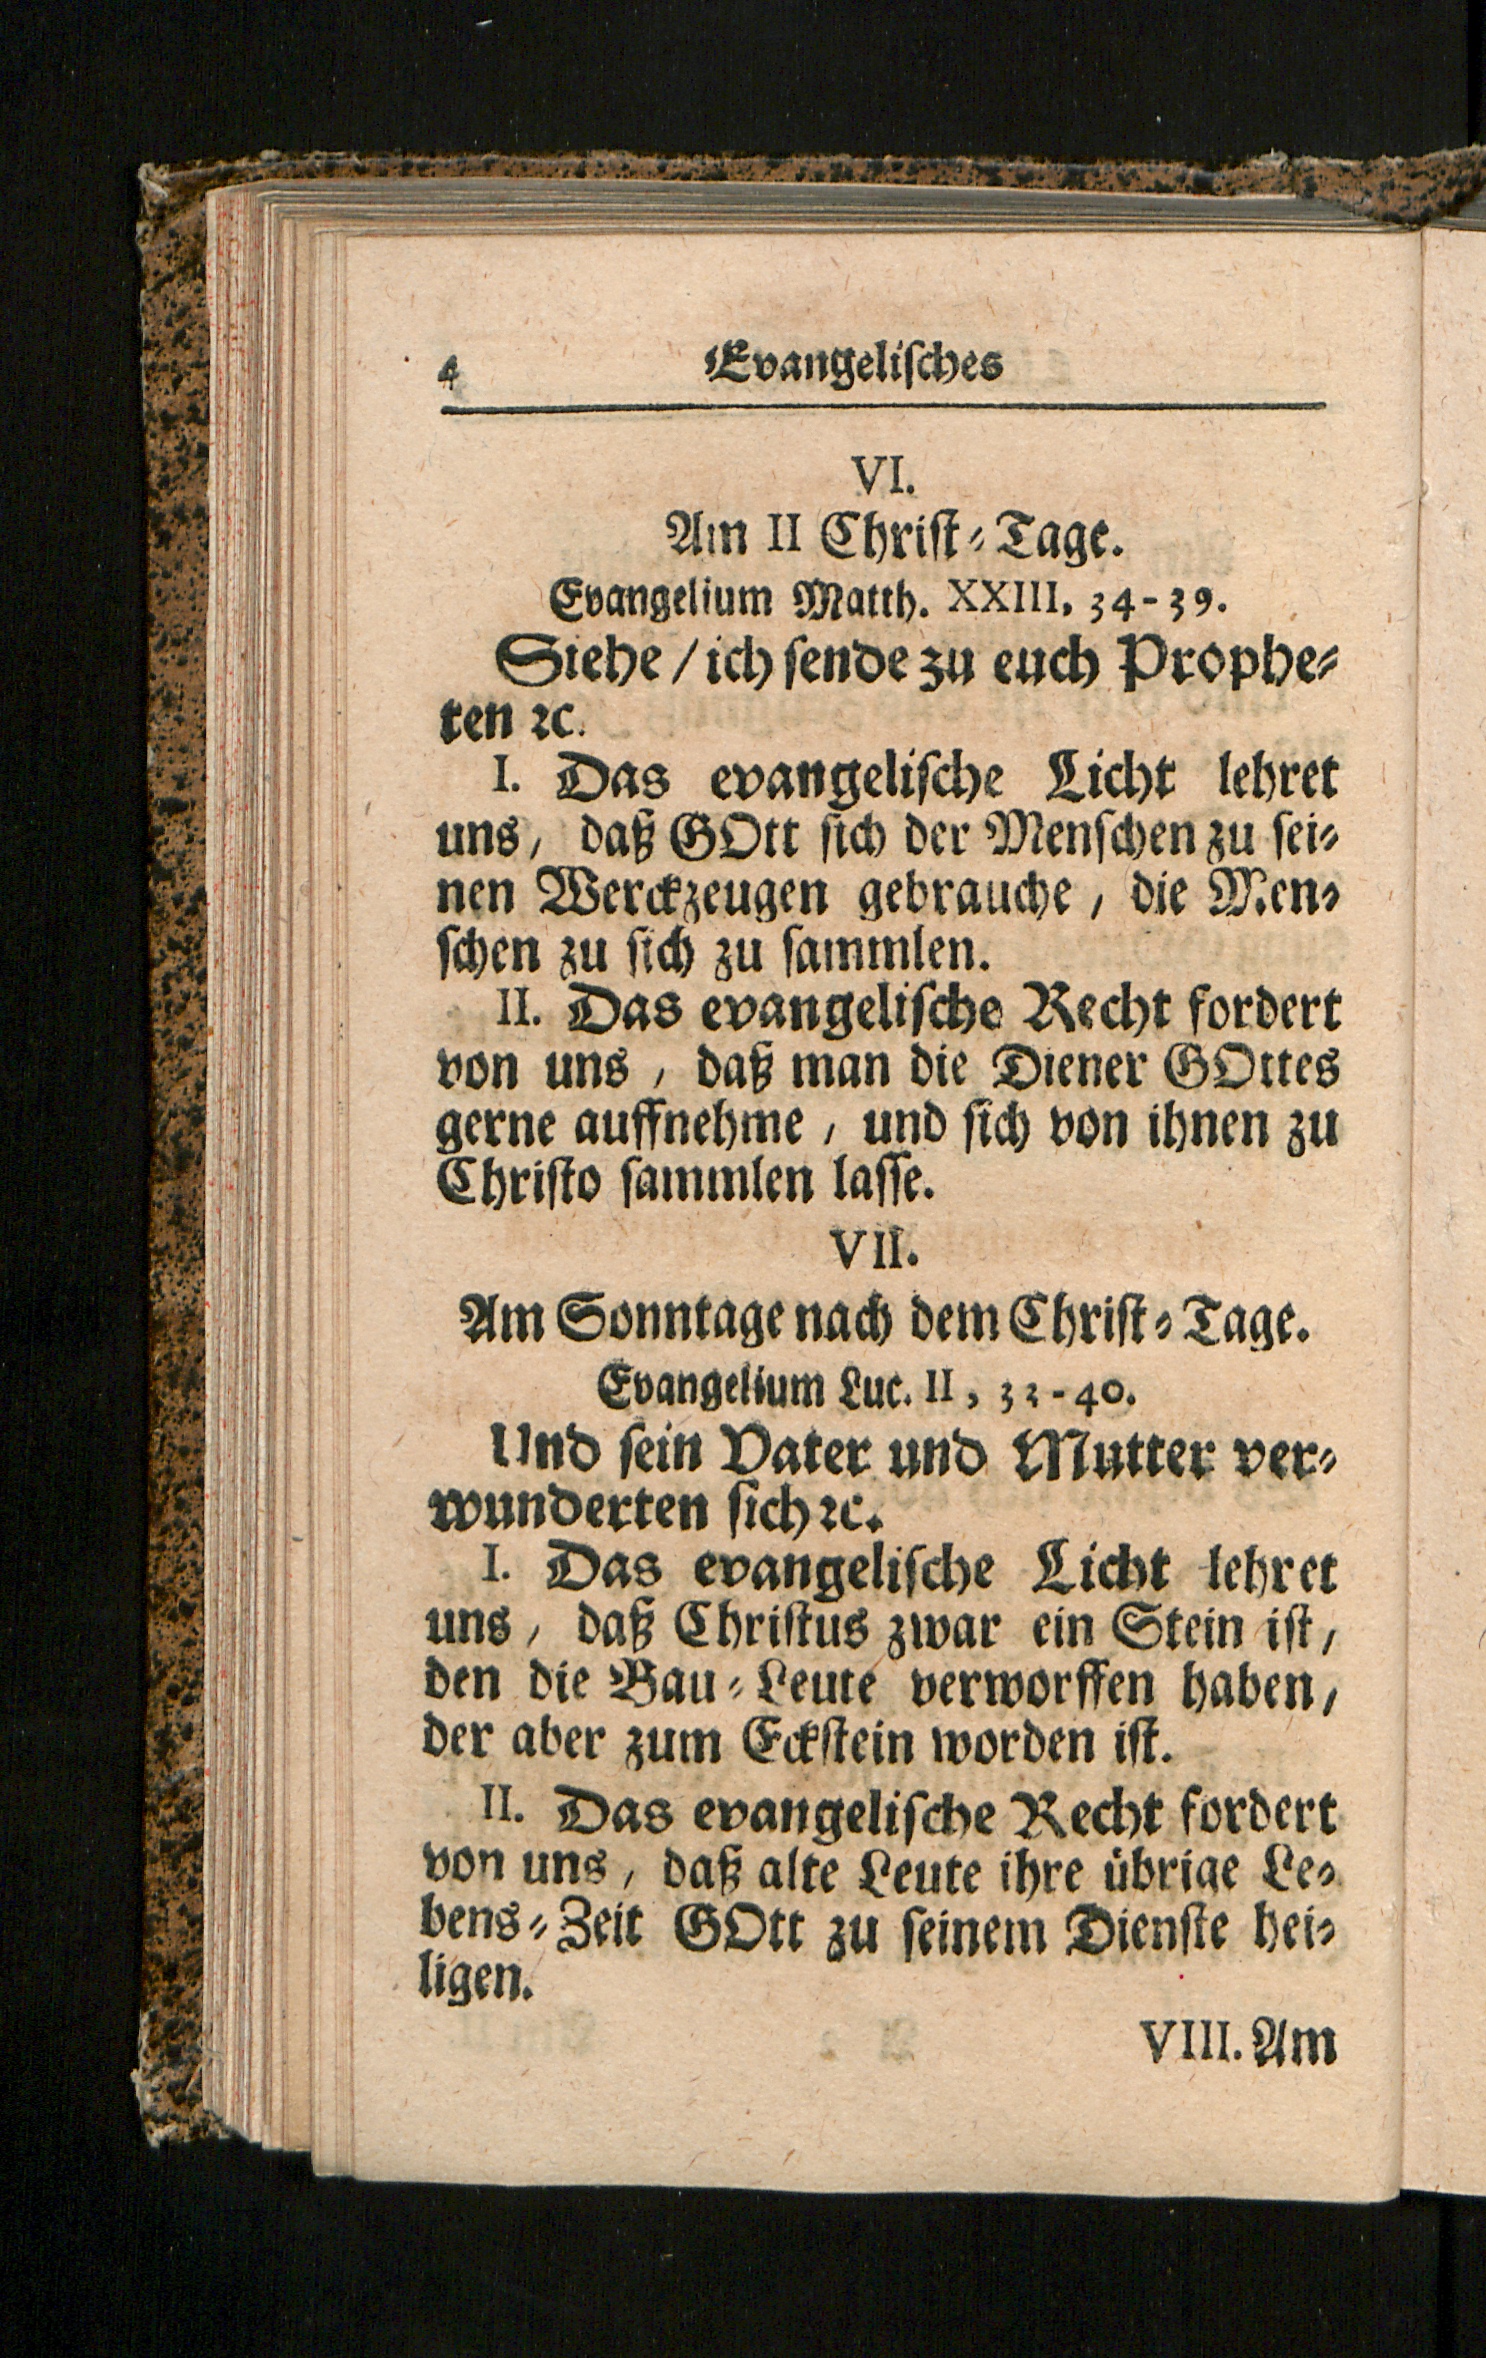 4 Evangeliſches
VI.
Am II Chriſt-Tage.
Evangelium Matth. XXIII, 34-39.
Siehe / ich ſende zu euch Prophe-
ten ꝛc.
I. Das evangeliſche Licht lehret
uns, daß GOtt ſich der Menſchen zu ſei-
nen Werckzeugen gebrauche, die Men-
ſchen zu ſich zu ſammlen.
II. Das evangeliſche Recht fordert
von uns, daß man die Diener GOttes
gerne auffnehme, und ſich von ihnen zu
Chriſto ſammlen laſſe.
VII.
Am Sonntage nach dem Chriſt-Tage.
Evangelium Luc. II, 33-40.
Und ſein Vater und Mutter ver-
wunderten ſich ꝛc.
I. Das evangeliſche Licht lehret
uns, daß Chriſtus zwar ein Stein iſt,
den die Bau-Leute verworffen haben,
der aber zum Eckſtein worden iſt.
II. Das evangeliſche Recht fordert
von uns, daß alte Leute ihre übrige Le-
bens-Zeit GOtt zu ſeinem Dienſte hei-
ligen.
VIII. Am